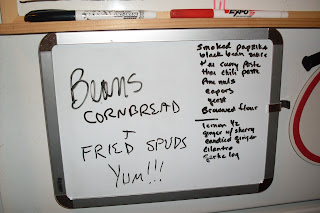 EXPO
Beans
CORNBREAD
+
FRIED SPUDS
YUM!!!
Smoked paprika
black bean sauce
Thai curry paste
Thai chili paste
capers
yeast
Browned flour
lemon
ginger w/ sherry
candied ginger
cilantro